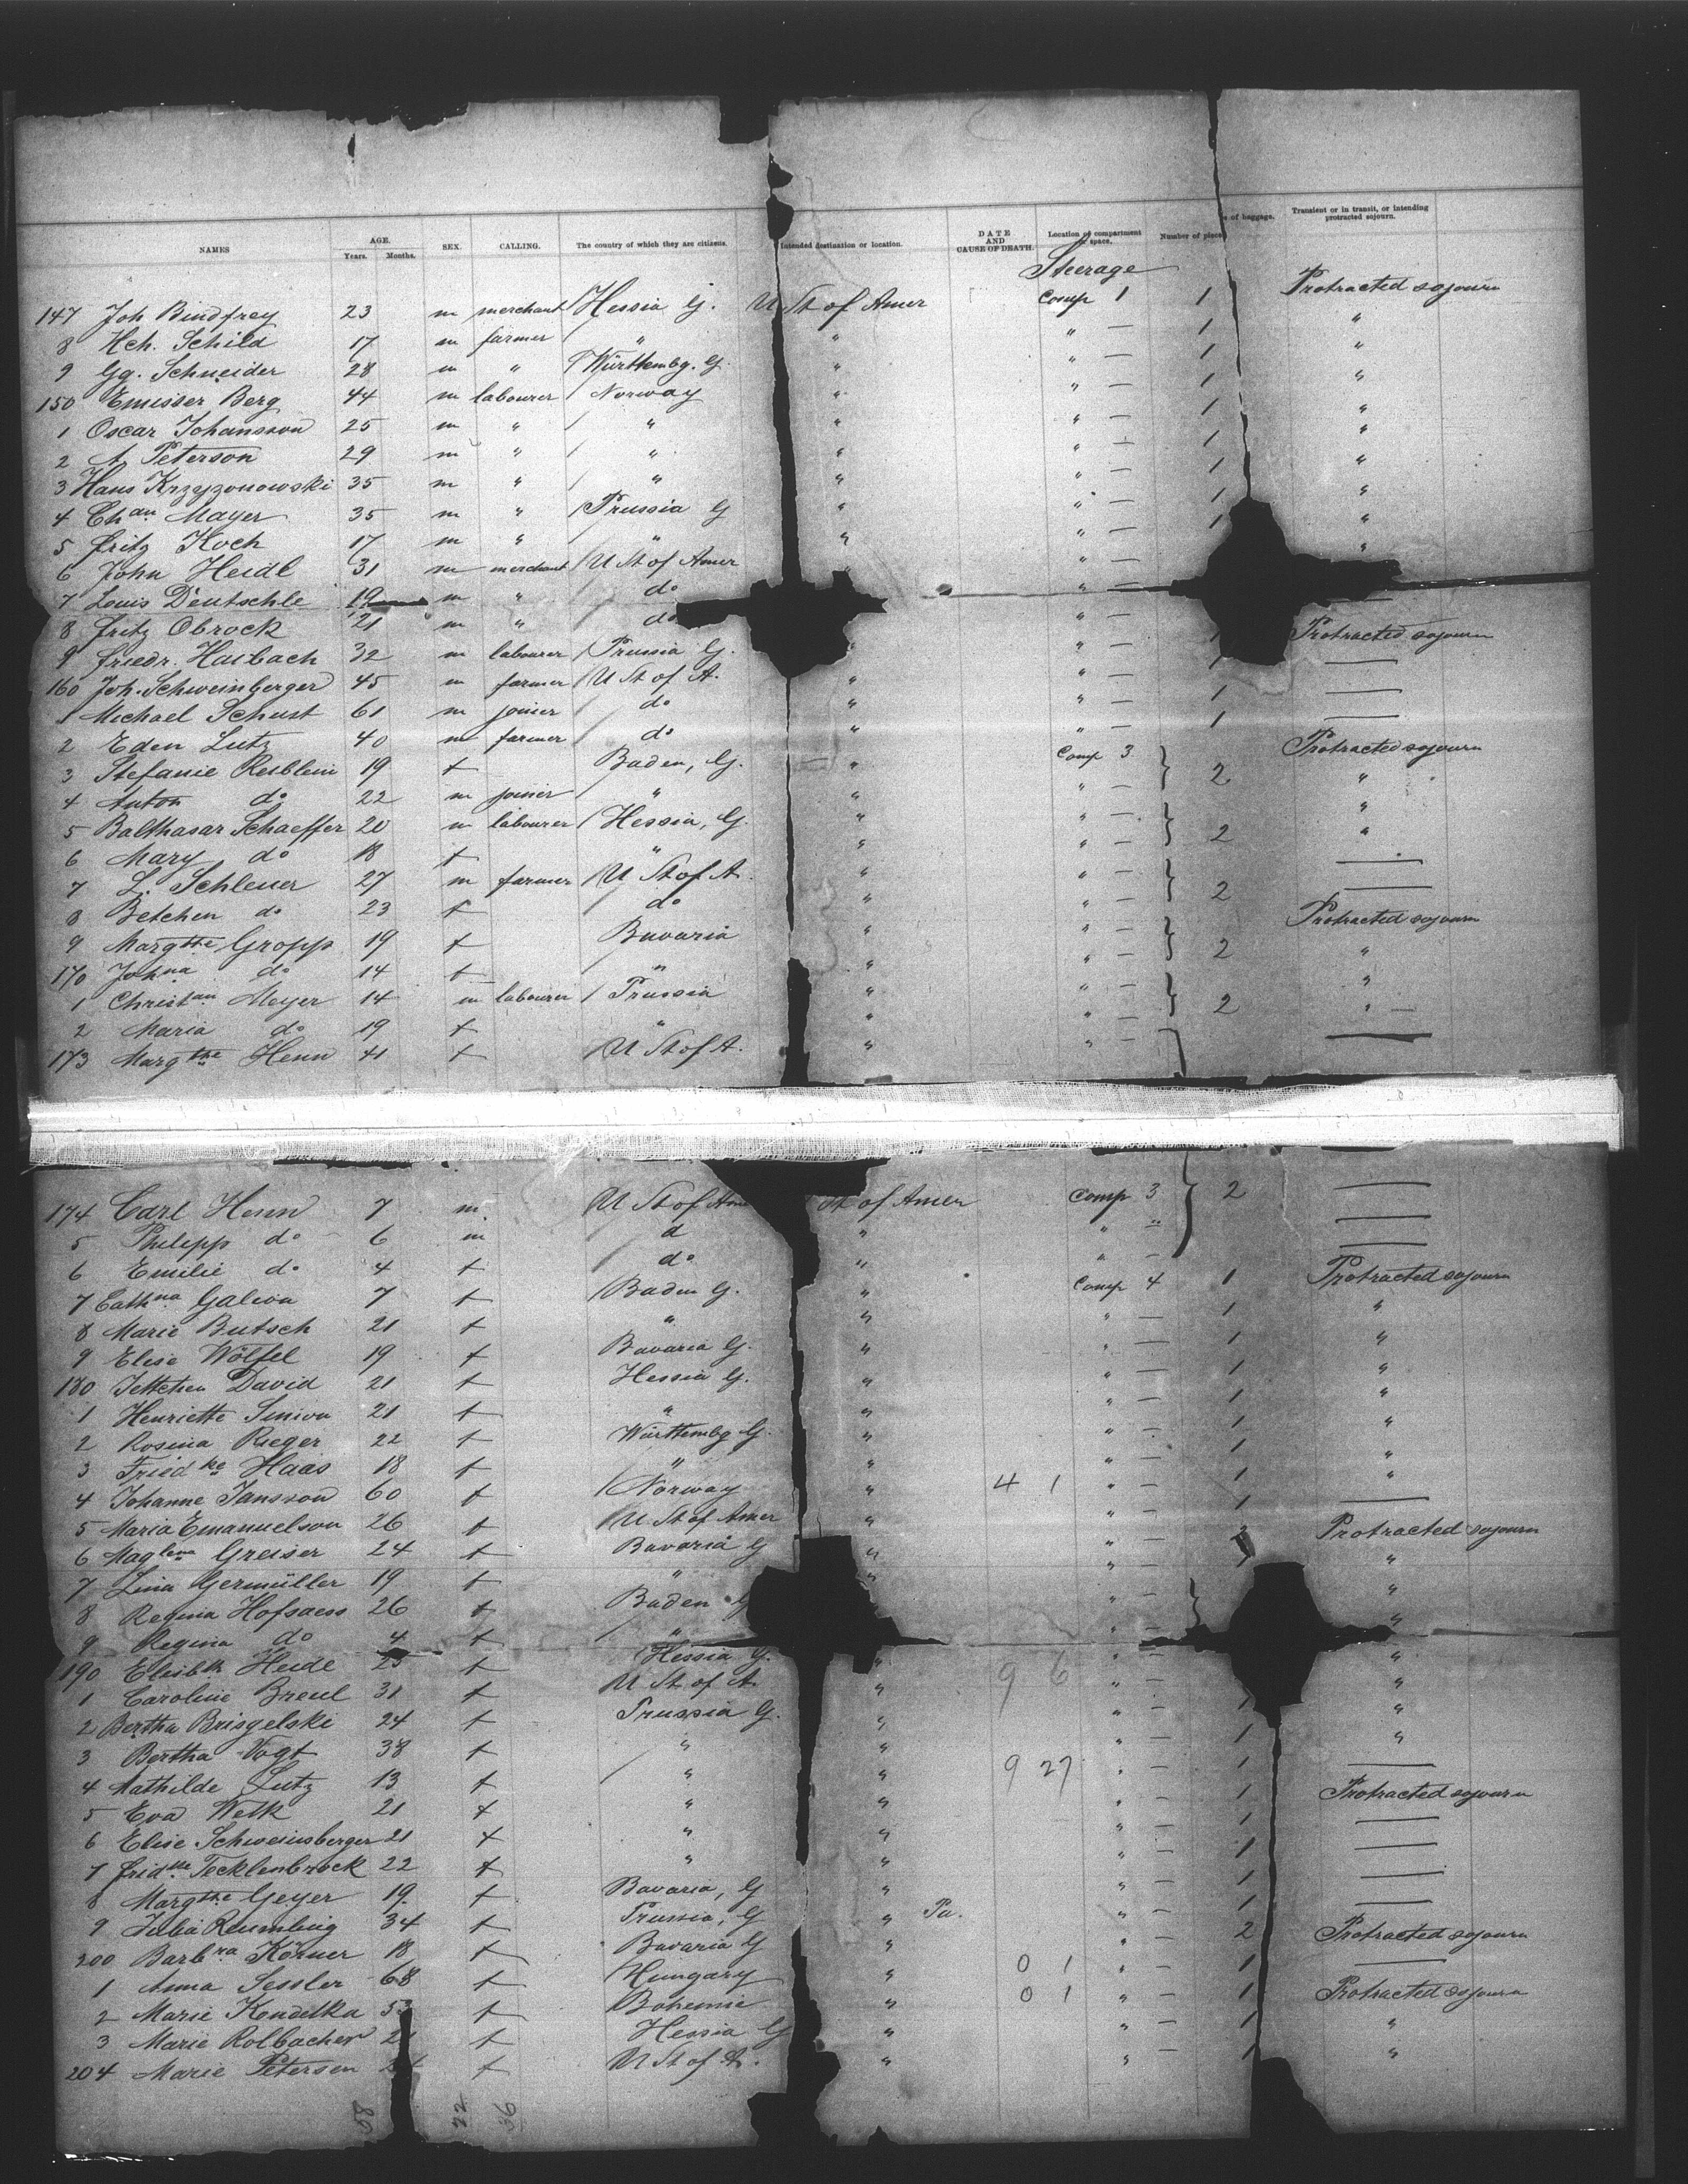 NAMES AGE. Years. Months. SEX. CALLING. The country of which they are citizens. Intended destination or location. DATE AND CAUSE OF DEATH. Location of compartment or space. Number of pieces of baggage. Transient or in transit, or intending protracted sojourn.
Steerage
147 Joh Bindfrey 23 m merchant Hessia G. U St of Amer Comp 1 1 Protracted sojourn
8 Hch. Schild 17 m farmer " " " — 1 "
9 Gg. Schneider 28 m " Württembg. G. " " — 1 "
150 Emisser Berg 44 m labourer Norway " " — 1 "
1 Oscar Johansson 25 m " " " " — 1 "
2 A. Peterson 29 m " " " " — 1 "
3 Hans Krzyzonowski 35 m " " " " — 1 "
4 Chan Mayer 35 m " Prussia G " " — 1 "
5 Fritz Koch 17 m " " " " — 1 "
6 John Heidl 31 m merchant U St of Amer " " —
7 Louis Deutschle 19 m " do " —
8 Fritz Obrock 21 m " do " — —
9 Friedr. Haibach 32 m labourer Prussia G. " " — 1 Protracted sojourn
160 Joh. Schweinberger 45 m farmer U St of A. " " — 1 —
1 Michael Schust 61 m joiner do " " — 1 —
2 Eden Lutz 40 m farmer do " " — 1 —
3 Stefanie Reiblein 19 f Baden, G. " Comp 3 Protracted sojourn
4 Anton do 22 m joiner " " " — 2 "
5 Balthasar Schaeffer 20 m labourer Hessia, G. " " — "
6 Mary do 18 f " " " — 2 "
7 L. Schleuer 27 m farmer U St of A. " " — —
8 Betchen do 23 f do " " — 2 —
9 Margthe Gropp 19 f Bavaria " " — Protracted sojourn
170 Johna do 14 f " " " — 2 "
1 Christan Meyer 14 m labourer Prussia " " — "
2 Maria do 19 f " " " — 2 "
173 Margthe Henn 41 f U St of A. " " — —
174 Carl Henn 7 m U St of Ame St of Amer Comp 3 2 —
5 Philipp do 6 m d " " " —
6 Emilie do 4 f do " " — —
7 Cathna Galion 7 f Baden G. " Comp 4 1 Protracted sojourn
8 Marie Butsch 21 f " " " — 1 "
9 Elise Wölfel 19 f Bavaria G. " " — 1 "
180 Jettchen David 21 f Hessia G. " " — 1 "
1 Henriette Simion 21 f " " " — 1 "
2 Rosina Rieger 22 f Württembg G. " " — 1 "
3 Friedke Haas 18 f " " " — 1 "
4 Johanne Jansson 60 f Norway " 4 1 " — 1 "
5 Maria Emanuelson 26 f U St of Amer " " — 1 —
6 Maglena Greiser 24 f Bavaria G " " — Protracted sojourn
7 Lina Germüller 19 f " " " — "
8 Regina Hofsaess 26 f Baden G " — "
9 Regina do 4 f " " — "
190 Elisbth Heidl 25 f Hessia G. " 9 6 " — "
1 Caroline Breul 31 f U St of A. " " — "
2 Bertha Brisgelski 24 f Prussia G. " " — 1 "
3 Bertha Vogt 38 f " " " — 1 "
4 Mathilde Lutz 13 f " " 9 27 " — 1 —
5 Eva Welk 21 f " " " — 1 Protracted sojourn
6 Elise Schweinsberger 21 f " " " — 1 —
7 Fridke Tecklenbrock 22 f " " " — 1 —
8 Margthe Geyer 19 f Bavaria, G " " — 1 —
9 Julia Reumbug 34 f Prussia, G " Pa. " — 1 —
200 Barbra Körner 18 f Bavaria G " " — 2 Protracted sojourn
1 Anna Sessler 68 f Hungary " 0 1 " — 1 —
2 Marie Kondelka 53 f Bohemie " 0 1 " — 1 Protracted sojourn
3 Marie Rolbacher f Hessia G " " — 1 "
204 Marie Petersen f U St of A. " " — 1 "
58 22 36